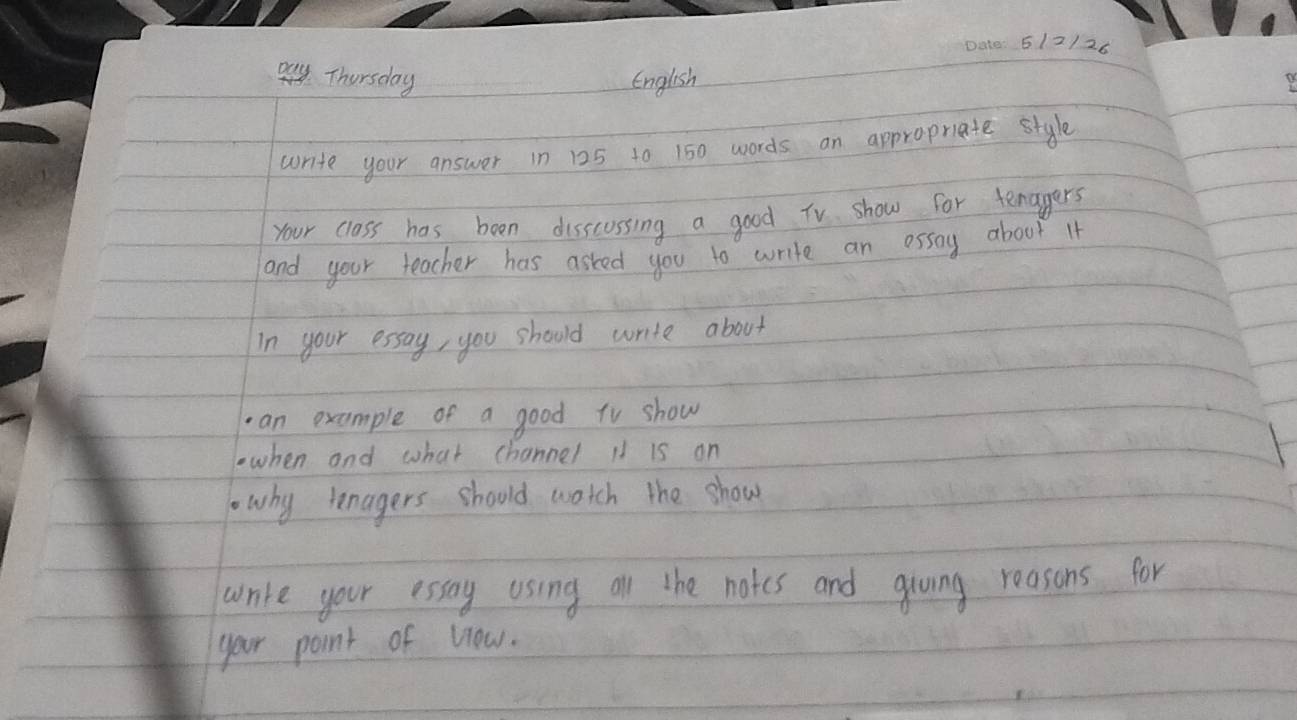 Day: Thursday English Date: 5/2/26
write your answer in 125 to 150 words on appropriate style
Your class has been disscussing a good TV show for tenagers
and your teacher has asked you to write an essay about it
In your essay, you should write about
• an example of a good TV show
• when and what channel it is on
• why tenagers should watch the show
Write your essay using all the notes and giving reasons for
your point of view.